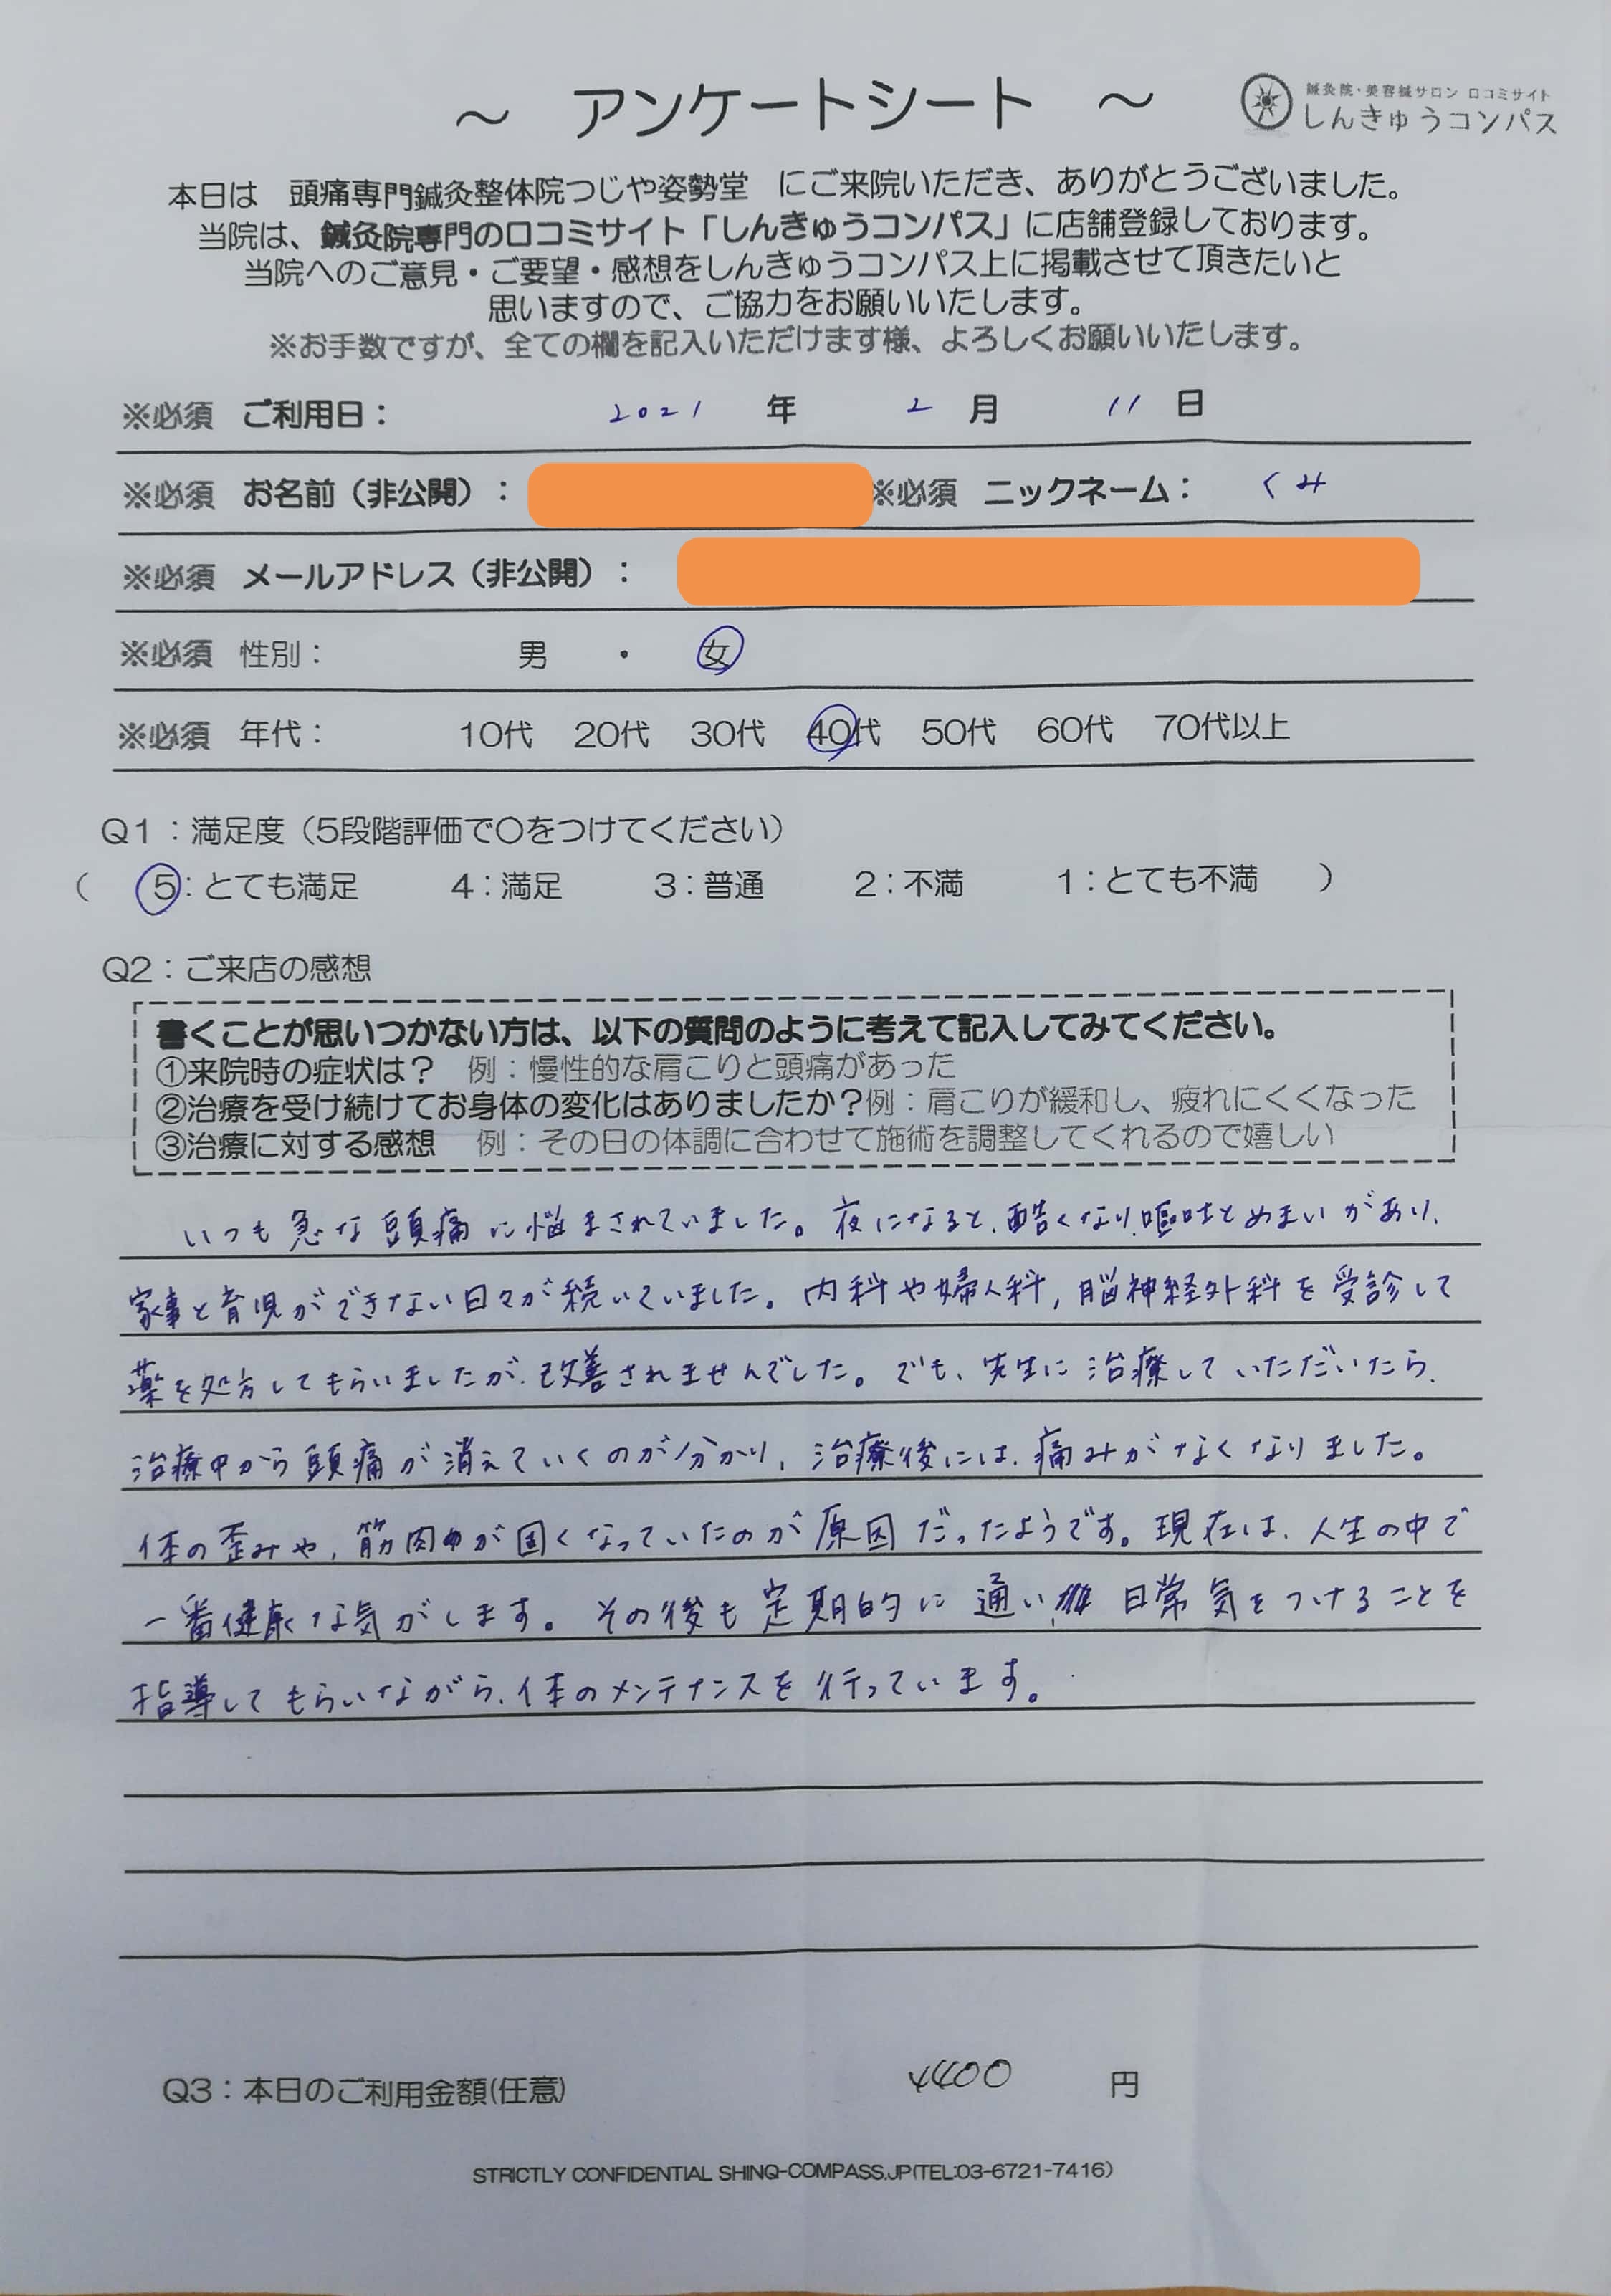 ～ アンケートシート ～
鍼灸院・美容鍼サロン 口コミサイト
しんきゅうコンパス
本日は 頭痛専門鍼灸整体院つじや姿勢堂 にご来院いただき、ありがとうございました。
当院は、鍼灸院専門の口コミサイト「しんきゅうコンパス」に店舗登録しております。
当院へのご意見・ご要望・感想をしんきゅうコンパス上に掲載させて頂きたいと
思いますので、ご協力をお願いいたします。
※お手数ですが、全ての欄を記入いただけます様、よろしくお願いいたします。
※必須 ご利用日： 2021 年 2 月 11 日
※必須 お名前（非公開）： ※必須 ニックネーム： くみ
※必須 メールアドレス（非公開）：
※必須 性別： 男 ・ 女
※必須 年代： 10代 20代 30代 40代 50代 60代 70代以上
Q1：満足度（5段階評価で〇をつけてください）
（ 5：とても満足 4：満足 3：普通 2：不満 1：とても不満 ）
Q2：ご来店の感想
書くことが思いつかない方は、以下の質問のように考えて記入してみてください。
①来院時の症状は？ 例：慢性的な肩こりと頭痛があった
②治療を受け続けてお身体の変化はありましたか？例：肩こりが緩和し、疲れにくくなった
③治療に対する感想 例：その日の体調に合わせて施術を調整してくれるので嬉しい
いつも急な頭痛に悩まされていました。夜になると、酷くなり、嘔吐とめまいがあり、
家事と育児ができない日々が続いていました。内科や婦人科，脳神経外科を受診して
薬を処方してもらいましたが、改善されませんでした。でも、先生に治療していただいたら、
治療中から頭痛が消えていくのが分かり、治療後には、痛みがなくなりました。
体の歪みや，筋肉が固くなっていたのが原因だったようです。現在は、人生の中で
一番健康な気がします。その後も定期的に通い、日常気をつけることを
指導してもらいながら、体のメンテナンスを行っています。
Q3：本日のご利用金額(任意) 4400 円
STRICTLY CONFIDENTIAL SHINQ-COMPASS.JP(TEL:03-6721-7416)